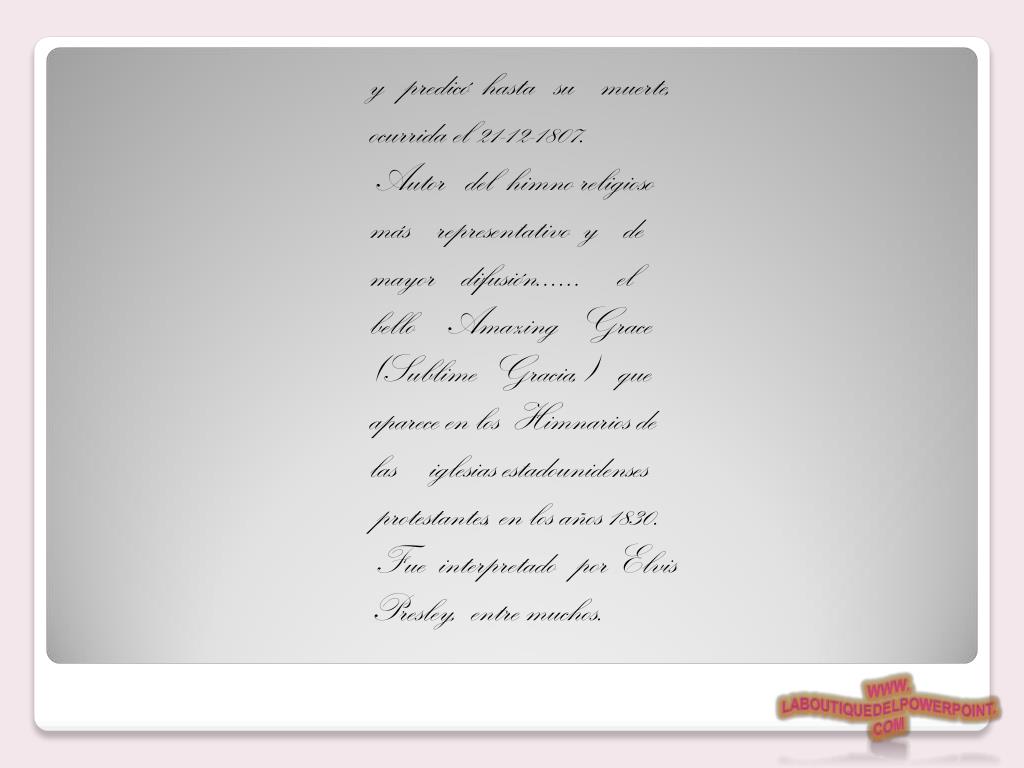 y predicó hasta su muerte,
ocurrida el 21-12-1807.
Autor del himno religioso
más representativo y de
mayor difusión...... el
bello Amazing Grace
(Sublime Gracia,) que
aparece en los Himnarios de
las iglesias estadounidenses
protestantes, en los años 1830.
Fue interpretado por Elvis
Presley, entre muchos.
WWW.
LABOUTIQUEDELPOWERPOINT.
COM